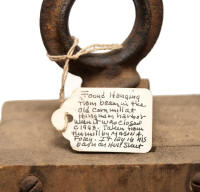 Found Hanging
from beam in the
old corn mill at
Hingham harbor
when it was closed
c 1948. Taken from
the mill by Mason A.
Foley. It lay in his
barn on Hull Street